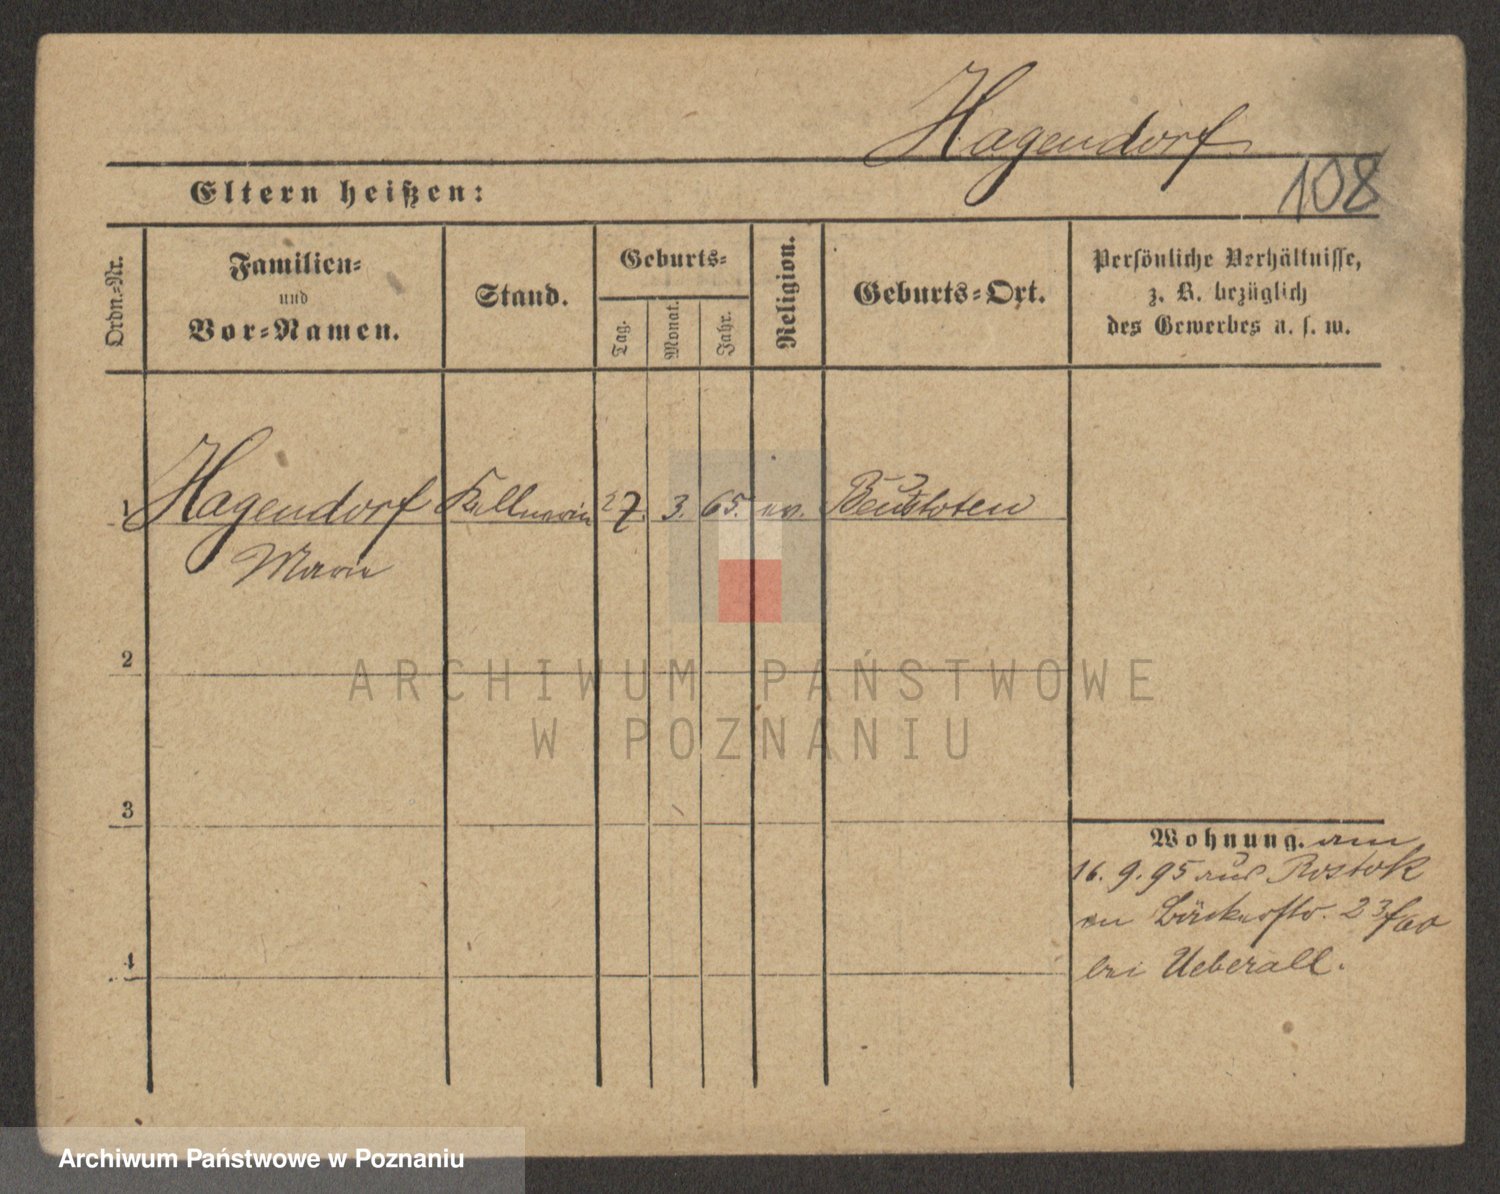 Hagendorf
108
Eltern heißen:
Ordn.-Nr.
Familien-
und
Vor-Namen.
Stand.
Geburts-
Tag.
Monat.
Jahr.
Religion.
Geburts-Ort.
Persönliche Verhältnisse,
z. B. bezüglich
des Gewerbes u. s. w.
1 Hagendorf Kellnerin 27. 3. 65. ev.
Marie
2
3
4
Wohnung. am
16. 9. 95 aus Rostok
Bäckerstr. 23
bei Ueberall.
ARCHIWUM PAŃSTWOWE
W POZNANIU
Archiwum Państwowe w Poznaniu